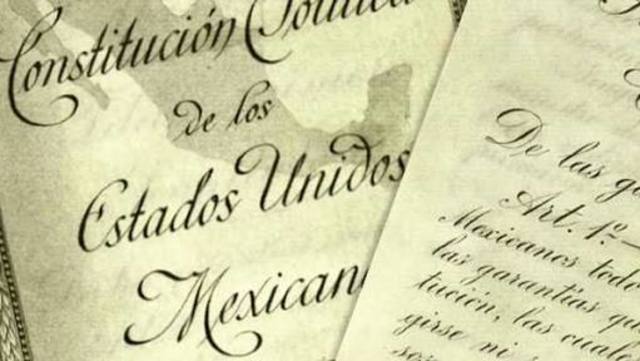 Constitución Política
de los
Estados Unidos
Mexican
De las g
Art. 1º
Mexicanos todo
las garantías qu
tución, las cuale
girse ni